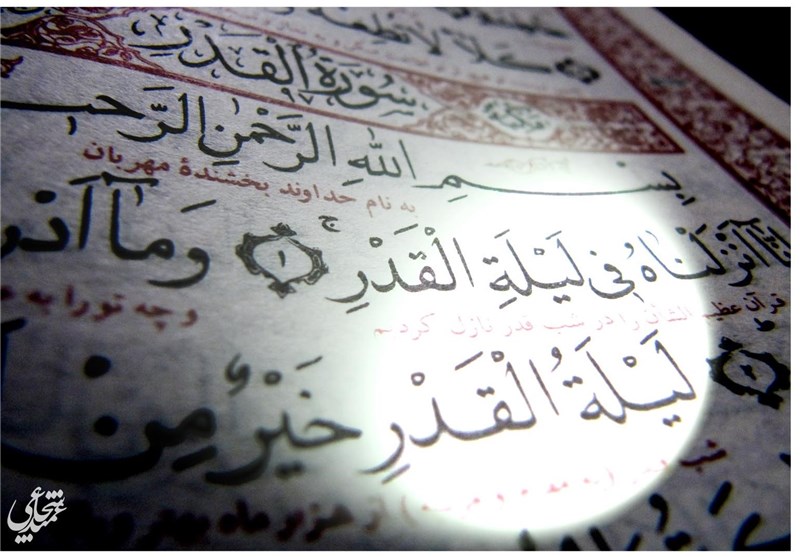 كَلَّا لَا تُطِعْهُ
سُورَةُ الْقَدْرِ
بِسْمِ اللَّهِ الرَّحْمَٰنِ الرَّحـ
به نام خداوند بخشندهٔ مهربان
أَنْزَلْنَاهُ فِي لَيْلَةِ الْقَدْرِ ١ وَمَا
قرآن عظیم الشان را در شب قدر نازل کردیم و چه تو را به
لَيْلَةُ الْقَدْرِ خَيْرٌ مِنْ
از هزار ماه بهتر